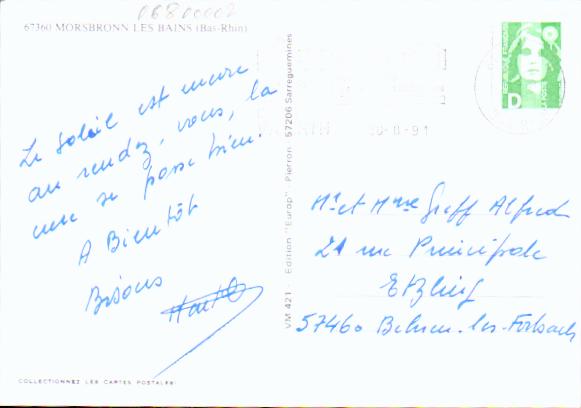 06800002
67360 MORSBRONN LES BAINS (Bas-Rhin)
Le Soleil est encore
au rendez, vous, la
cure se passe bien!
A Bientôt
Bisous
VM 421 Edition "Europ" Pierron 57206 Sarreguemines
-8-91
D
Mr et Mme Greff Alfred
21 rue Principale
Etzling
57460 Behren-les-Forbach
COLLECTIONNEZ LES CARTES POSTALES